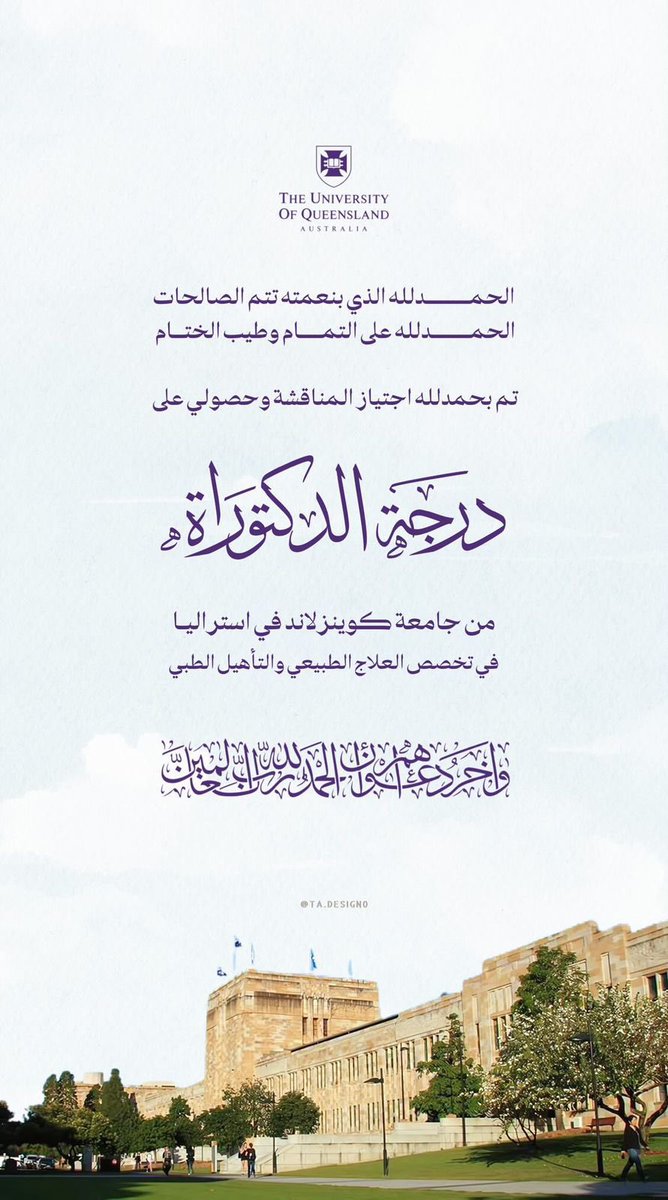 THE UNIVERSITY
OF QUEENSLAND
AUSTRALIA
الحمــــدلله الذي بنعمته تتم الصالحات
الحمــــدلله على التمــام وطيب الختــام
تم بحمدلله اجتياز المناقشة وحصولي على
درجة الدكتوراة
من جامعة كوينزلاند في استراليـا
في تخصص العلاج الطبيعي والتأهيل الطبي
وَآخِرُ دَعْوَاهُمْ أَنِ الْحَمْدُ لِلَّهِ رَبِّ الْعَالَمِينَ
@TA.DESIGN0